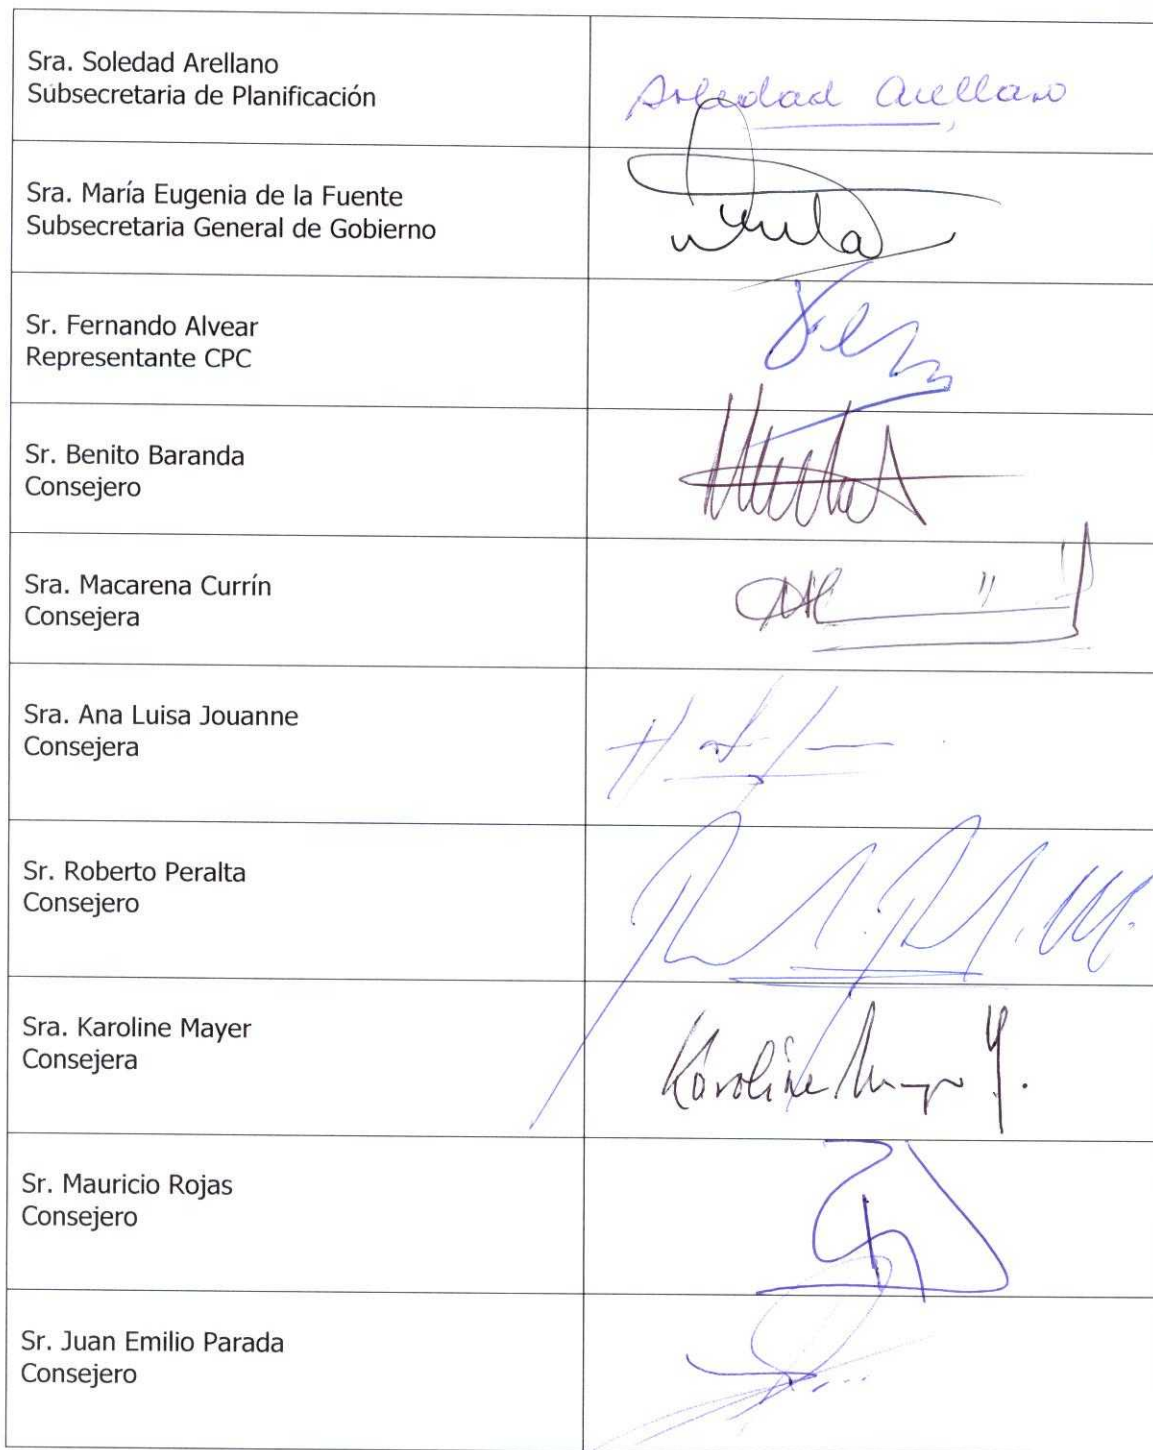 Sra. Soledad Arellano
Subsecretaria de Planificación
Soledad Arellano
Sra. María Eugenia de la Fuente
Subsecretaria General de Gobierno
Sr. Fernando Alvear
Representante CPC
Sr. Benito Baranda
Consejero
Sra. Macarena Currín
Consejera
Sra. Ana Luisa Jouanne
Consejera
Sr. Roberto Peralta
Consejero
Sra. Karoline Mayer
Consejera
Karoline Mayer
Sr. Mauricio Rojas
Consejero
Sr. Juan Emilio Parada
Consejero